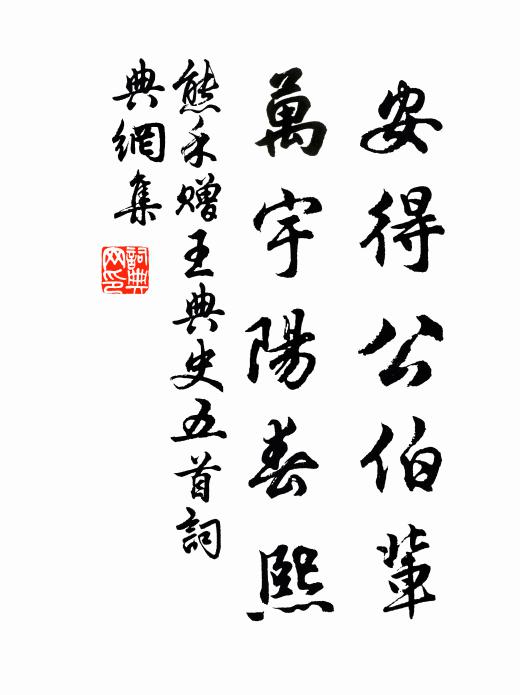 安得公伯輩
萬宇陽春熙
熊禾贈王典史五首詞
典網集
詞典
网印